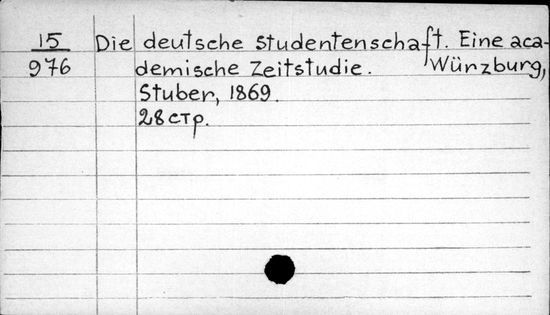 15 Die deutsche Studentenschaft. Eine aca-
976 demische Zeitstudie. Würzburg,
Stuber, 1869.
28 стр.